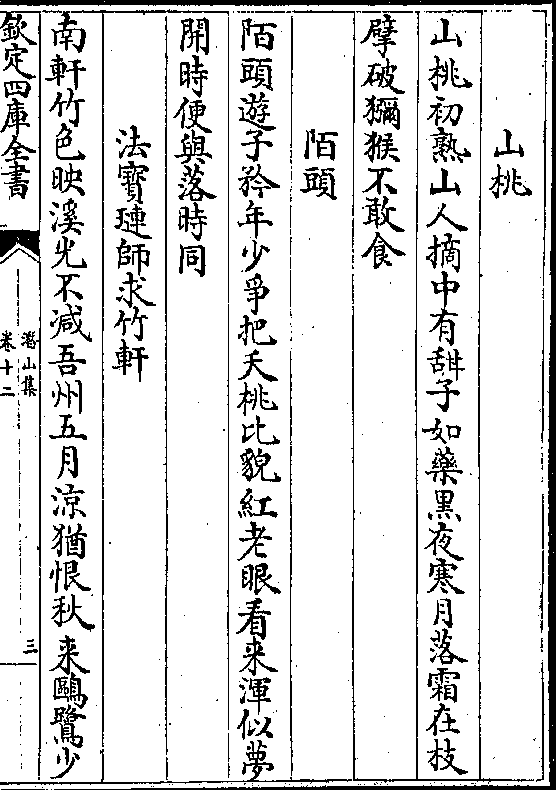 山桃
山桃初熟山人摘中有甜子如藥黑夜寒月落霜在枝
擘破獼猴不敢食
陌頭
陌頭遊子矜年少爭把夭桃比貌紅老眼看来渾似夢
開時便與落時同
法寶璉師求竹軒
南軒竹色映溪光不減吾州五月涼猶恨秋来鷗鷺少
欽定四庫全書
潛山集
卷十二
三